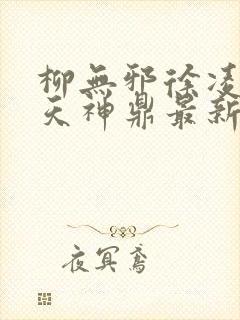 柳無邪徐凌
天神鼎最新
夜冥鳶